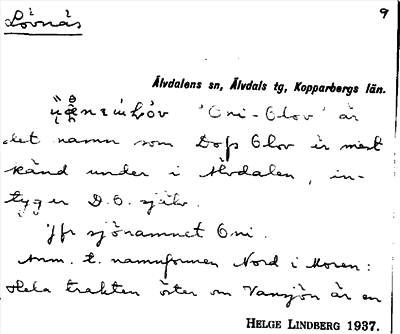 Lövnäs
9
Älvdalens sn, Älvdals tg, Kopparbergs län.
'Oni-Olov' är
det namn som Dofs Olov är mest
känd under i Älvdalen, in-
tygar D.O. själv.
Jfr sjönamnet Oni.
Anm. t. namnformen Nord i Moren:
Hela trakten öster om Vansjön är en
HELGE LINDBERG 1937.